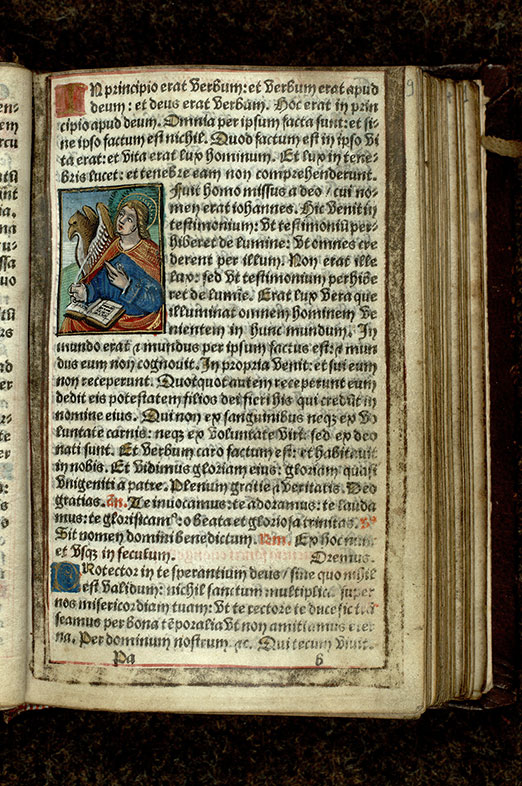 IN principio erat verbum: et verbum erat apud
deum: et deus erat verbum. Hoc erat in prin
cipio apud deum. Omnia per ipsum facta sunt: et si-
ne ipso factum est nichil. Quod factum est in ipso vi
ta erat: et vita erat lux hominum. Et lux in tene-
bris lucet: et tenebre eam non comprehenderunt.
Fuit homo missus a deo / cui no-
men erat iohannes. Hic venit in
testimonium: vt testimoniū per-
hiberet de lumine: vt omnes cre
derent per illum. Non erat ille
lux: sed vt testimonium perhibe
ret de lumīe. Erat lux vera que
illuminat omnem hominem ve
nientem in hunc mundum. In
mundo erat & mundus per ipsum factus est: & mun
dus eum non cognouit. In propria venit: et sui eum
non receperunt. Quotquot autem receperunt eum
dedit eis potestatem filios dei fieri his qui credūt in
nomine eius. Qui non ex sanguinibus neqz ex vo
luntate carnis: neqz ex voluntate viri: sed ex deo
nati sunt. Et verbum caro factum est: et habitauit
in nobis. Et vidimus gloriam eius: gloriam quasi
vnigeniti a patre. Plenum gratie & veritatis. Deo
gratias. añ. Te inuocamus: te adoramus: te lauda
mus: te glorificam⁹: o beata et gloriosa trinitas. v̄s
Sit nomen domini benedictum. Rm. Ex hoc nunc
et vsqz in seculum. Oremus.
PRotector in te sperantium deus / sine quo nihil
est validum: nichil sanctum multiplica super
nos misericordiam tuam: vt te rectore te duce sic trā
seamus per bona tēporalia vt non amittamus eter
na. Per dominum nostrum &c. Qui tecum viuit.
Pa b
9